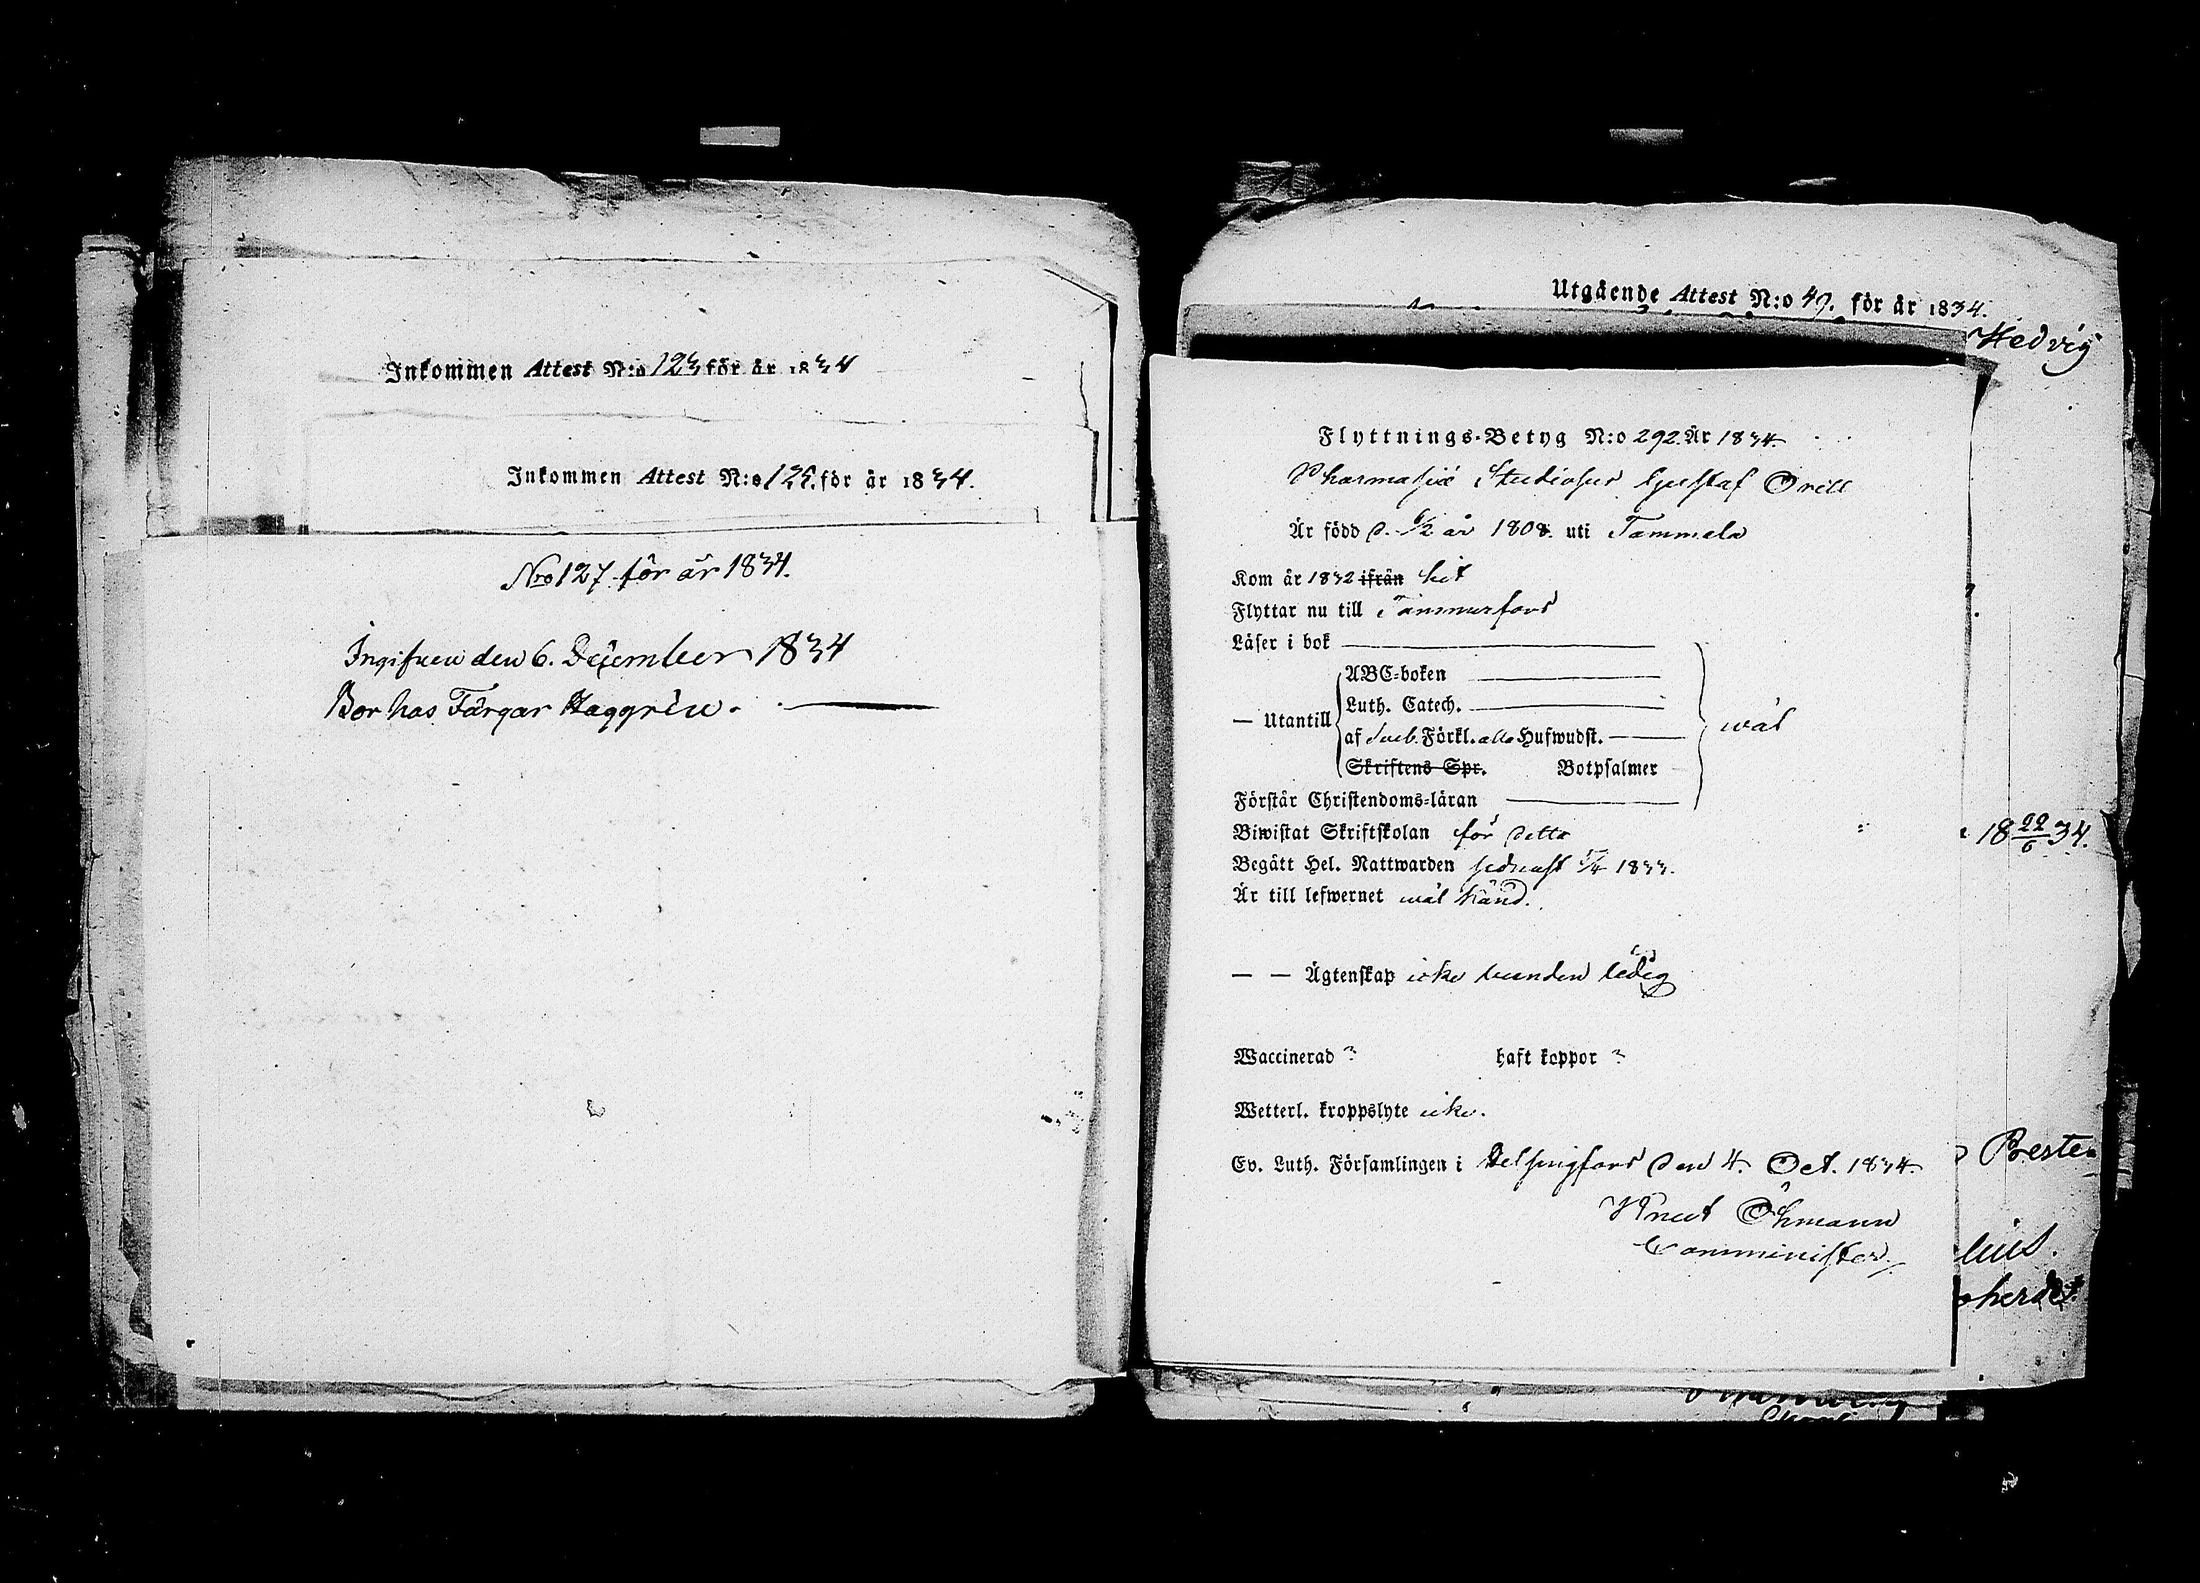 Inkommen Attest N:o 123 för år 1834
Inkommen Attest N:o 125. för år 1834.
Nro 127 för år 1834.
Ingifven den 6. December 1834
Bor hos Färgar Haggrén.
Utgående Attest N:o 49. för år 1834.
Hedvig
Flyttnings-Betyg N:o 292. År 1834.
Pharmasiæ Studiosus Gustaf Orell
Är född d. 6/2 år 1808. uti Tammela
Kom år 1832 ifrån hit
Flyttar nu till Tammerfors
Läser i bok
ABC-boken
Luth. Catech.
— Utantill
wäl
af Sveb. Förkl. alla Hufwudst.
Skriftens Spr. Botpsalmer
Förstår Christendoms-läran
Biwistat Skriftskolan för detta
18 22/6 34.
Begått Hel. Nattwarden sednast 5/4 1833.
Är till lefwernet wäl känd.
— — Ägtenskap icke bunden ledig
Waccinerad ? haft koppor ?
Wetterl. kroppslyte icke.
Beste-
Ev. Luth. Församlingen i Helsingfors den 4. Oct. 1834.
Knut Öhmann
Comminister
lius.
oherde.